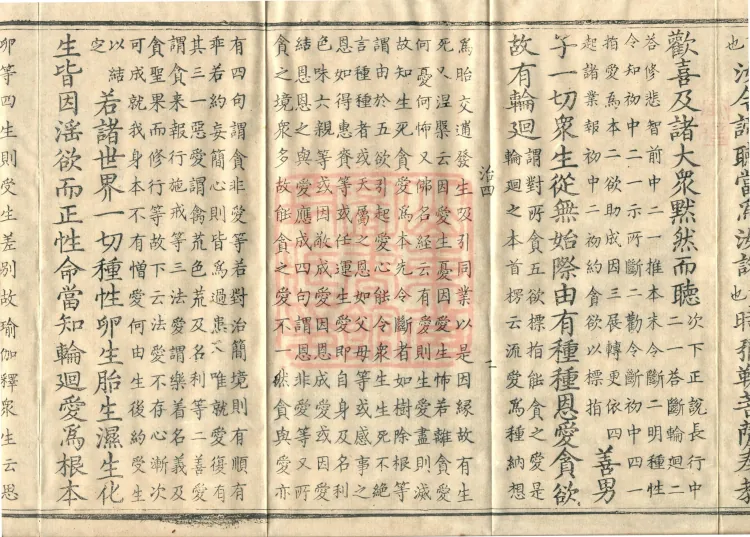 也汝今諦聽當爲汝說也時彌勒菩薩奉教
歡喜及諸大衆黙然而聽
次下正說長行中
二一答斷輪廻二
答修悲智前中二一推本末令斷二明種性
令知初中二一示所斷二勸令斷初中四一
指愛爲本二欲助成因三展轉更依四
起諸業報初中二初約貪欲以標指
善男
子一切衆生從無始際由有種種恩愛貪欲
故有輪廻
謂對所貪五欲標指能貪之愛是
輪廻之本首楞云流愛爲種納想
治四 二
爲胎交遘發生吸引同業以是因緣故有生
死乂涅槃云因愛生憂因愛生怖若離貪愛
何憂何怖又佛名経云有愛則生愛盡則滅
故知生死貪愛爲本先令斷者如樹除根等
謂由於五欲引起愛心能令衆生生死不絶
言種種者或天屬之恩如父母等或感事之
恩如得惠賚等或任運生愛即自身及名利
色味六親等或因敬成愛或因恩成愛或因愛
結恩恩之與愛應成四句謂恩非愛等又所
貪之境衆多故能貪之愛不一然貪與愛亦
有四句謂貪非愛等若對治簡境則有順有
乖若約妄簡心則皆爲過患又唯就愛復有
其三一惡愛謂禽荒色荒及名利等二善愛
謂貪来報行施戒等三法愛謂樂着名義及
貪聖果而修行等故下云法愛不存心漸次
可成就我身本不有憎愛何由生後約受生
以結
定
若諸世界一切種性卵生胎生濕生化
生皆因淫欲而正性命當知輪廻愛爲根本
卵等四生則受生差別故瑜伽釋衆生云思